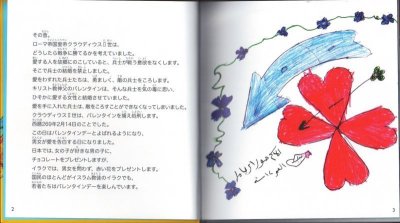 その昔。
ローマ帝国皇帝クラウディウスⅡ世は、
どうしたら戦争に勝てるかを考えていました。
愛する人を故郷にのこしていると、兵士が戦う意欲をなくします。
そこで兵士の結婚を禁止しました。
愛をうばわれた兵士たちは、勇ましく、敵の兵士をころします。
キリスト教神父のバレンタインは、そんな兵士を気の毒に思い、
ひそかに愛する女性と結婚させていました。
愛を手に入れた兵士は、敵をころすことができなくなってしまいました。
クラウディウスⅡ世は、バレンタインを捕え処刑します。
西暦269年2月14日のことでした。
この日はバレンタインデーとよばれるようになり、
男女が愛を告白する日になりました。
日本では、女の子が好きな男の子に、
チョコレートをプレゼントしますが、
イラクでは、男女を問わず、赤い花をプレゼントします。
国民のほとんどがイスラム教徒のイラクでも、
若者たちはバレンタインデーを楽しんでいます。
2
3